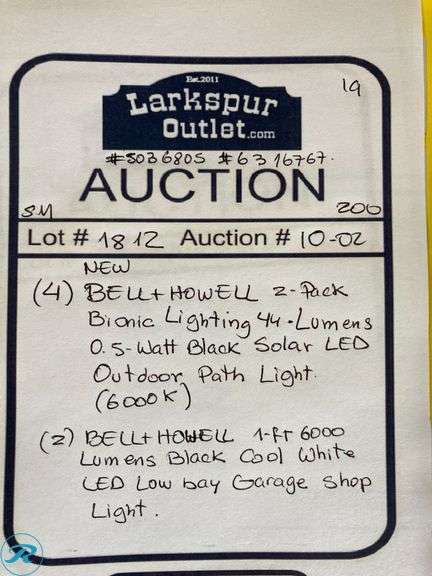 19
Est. 2011
Larkspur
Outlet.com
#5036805 #6316767.
AUCTION
SM 200
Lot # 1812 Auction # 10-02
NEW
(4) BELL+HOWELL 2-Pack
Bionic Lighting 44-Lumens
0.5-Watt Black Solar LED
Outdoor Path Light.
(6000K)
(2) BELL+HOWELL 1-ft 6000
Lumens Black Cool White
LED Low bay Garage Shop
Light.
R